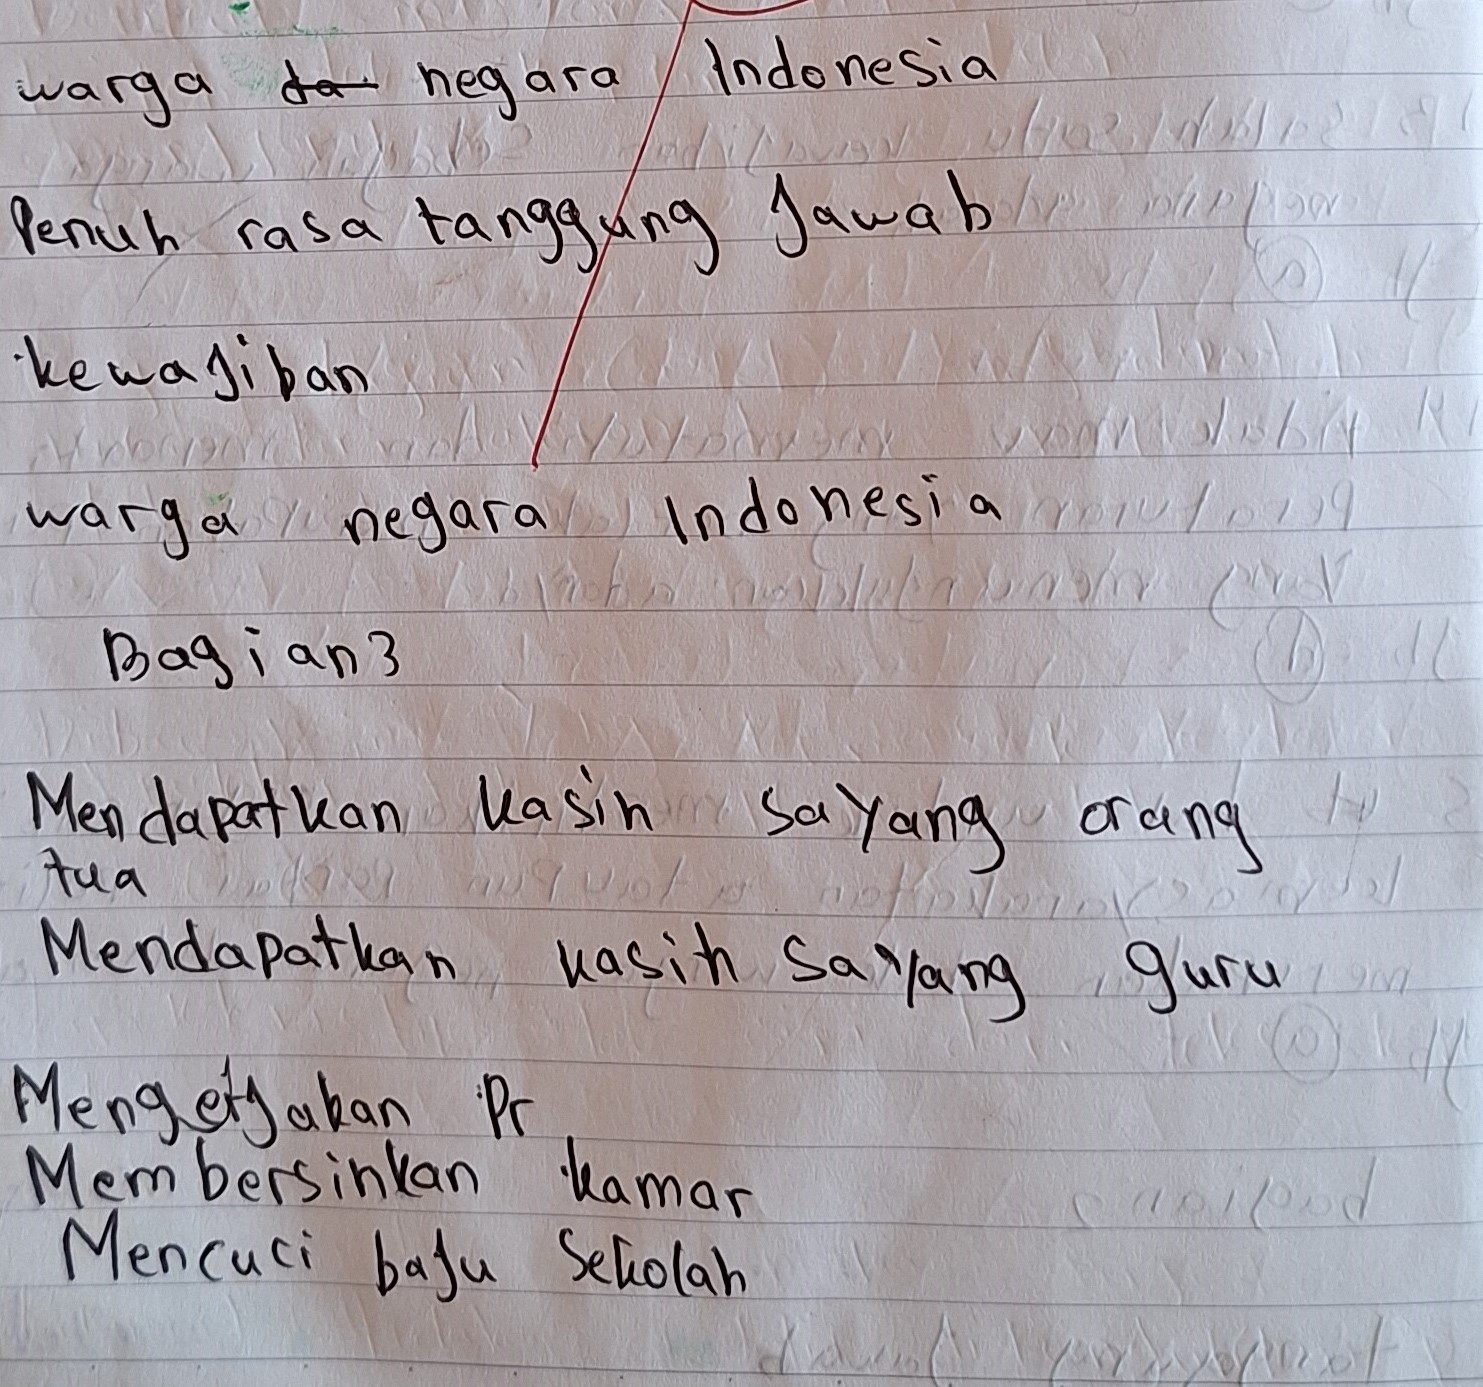 warga da negara Indonesia
Penuh rasa tanggung Jawab
kewajiban
warga negara Indonesia
Bagian 3
Mendapatkan kasih sayang orang
tua
Mendapatkan kasih sayang guru
Mengerjakan Pr
Membersihkan kamar
Mencuci baju Sekolah